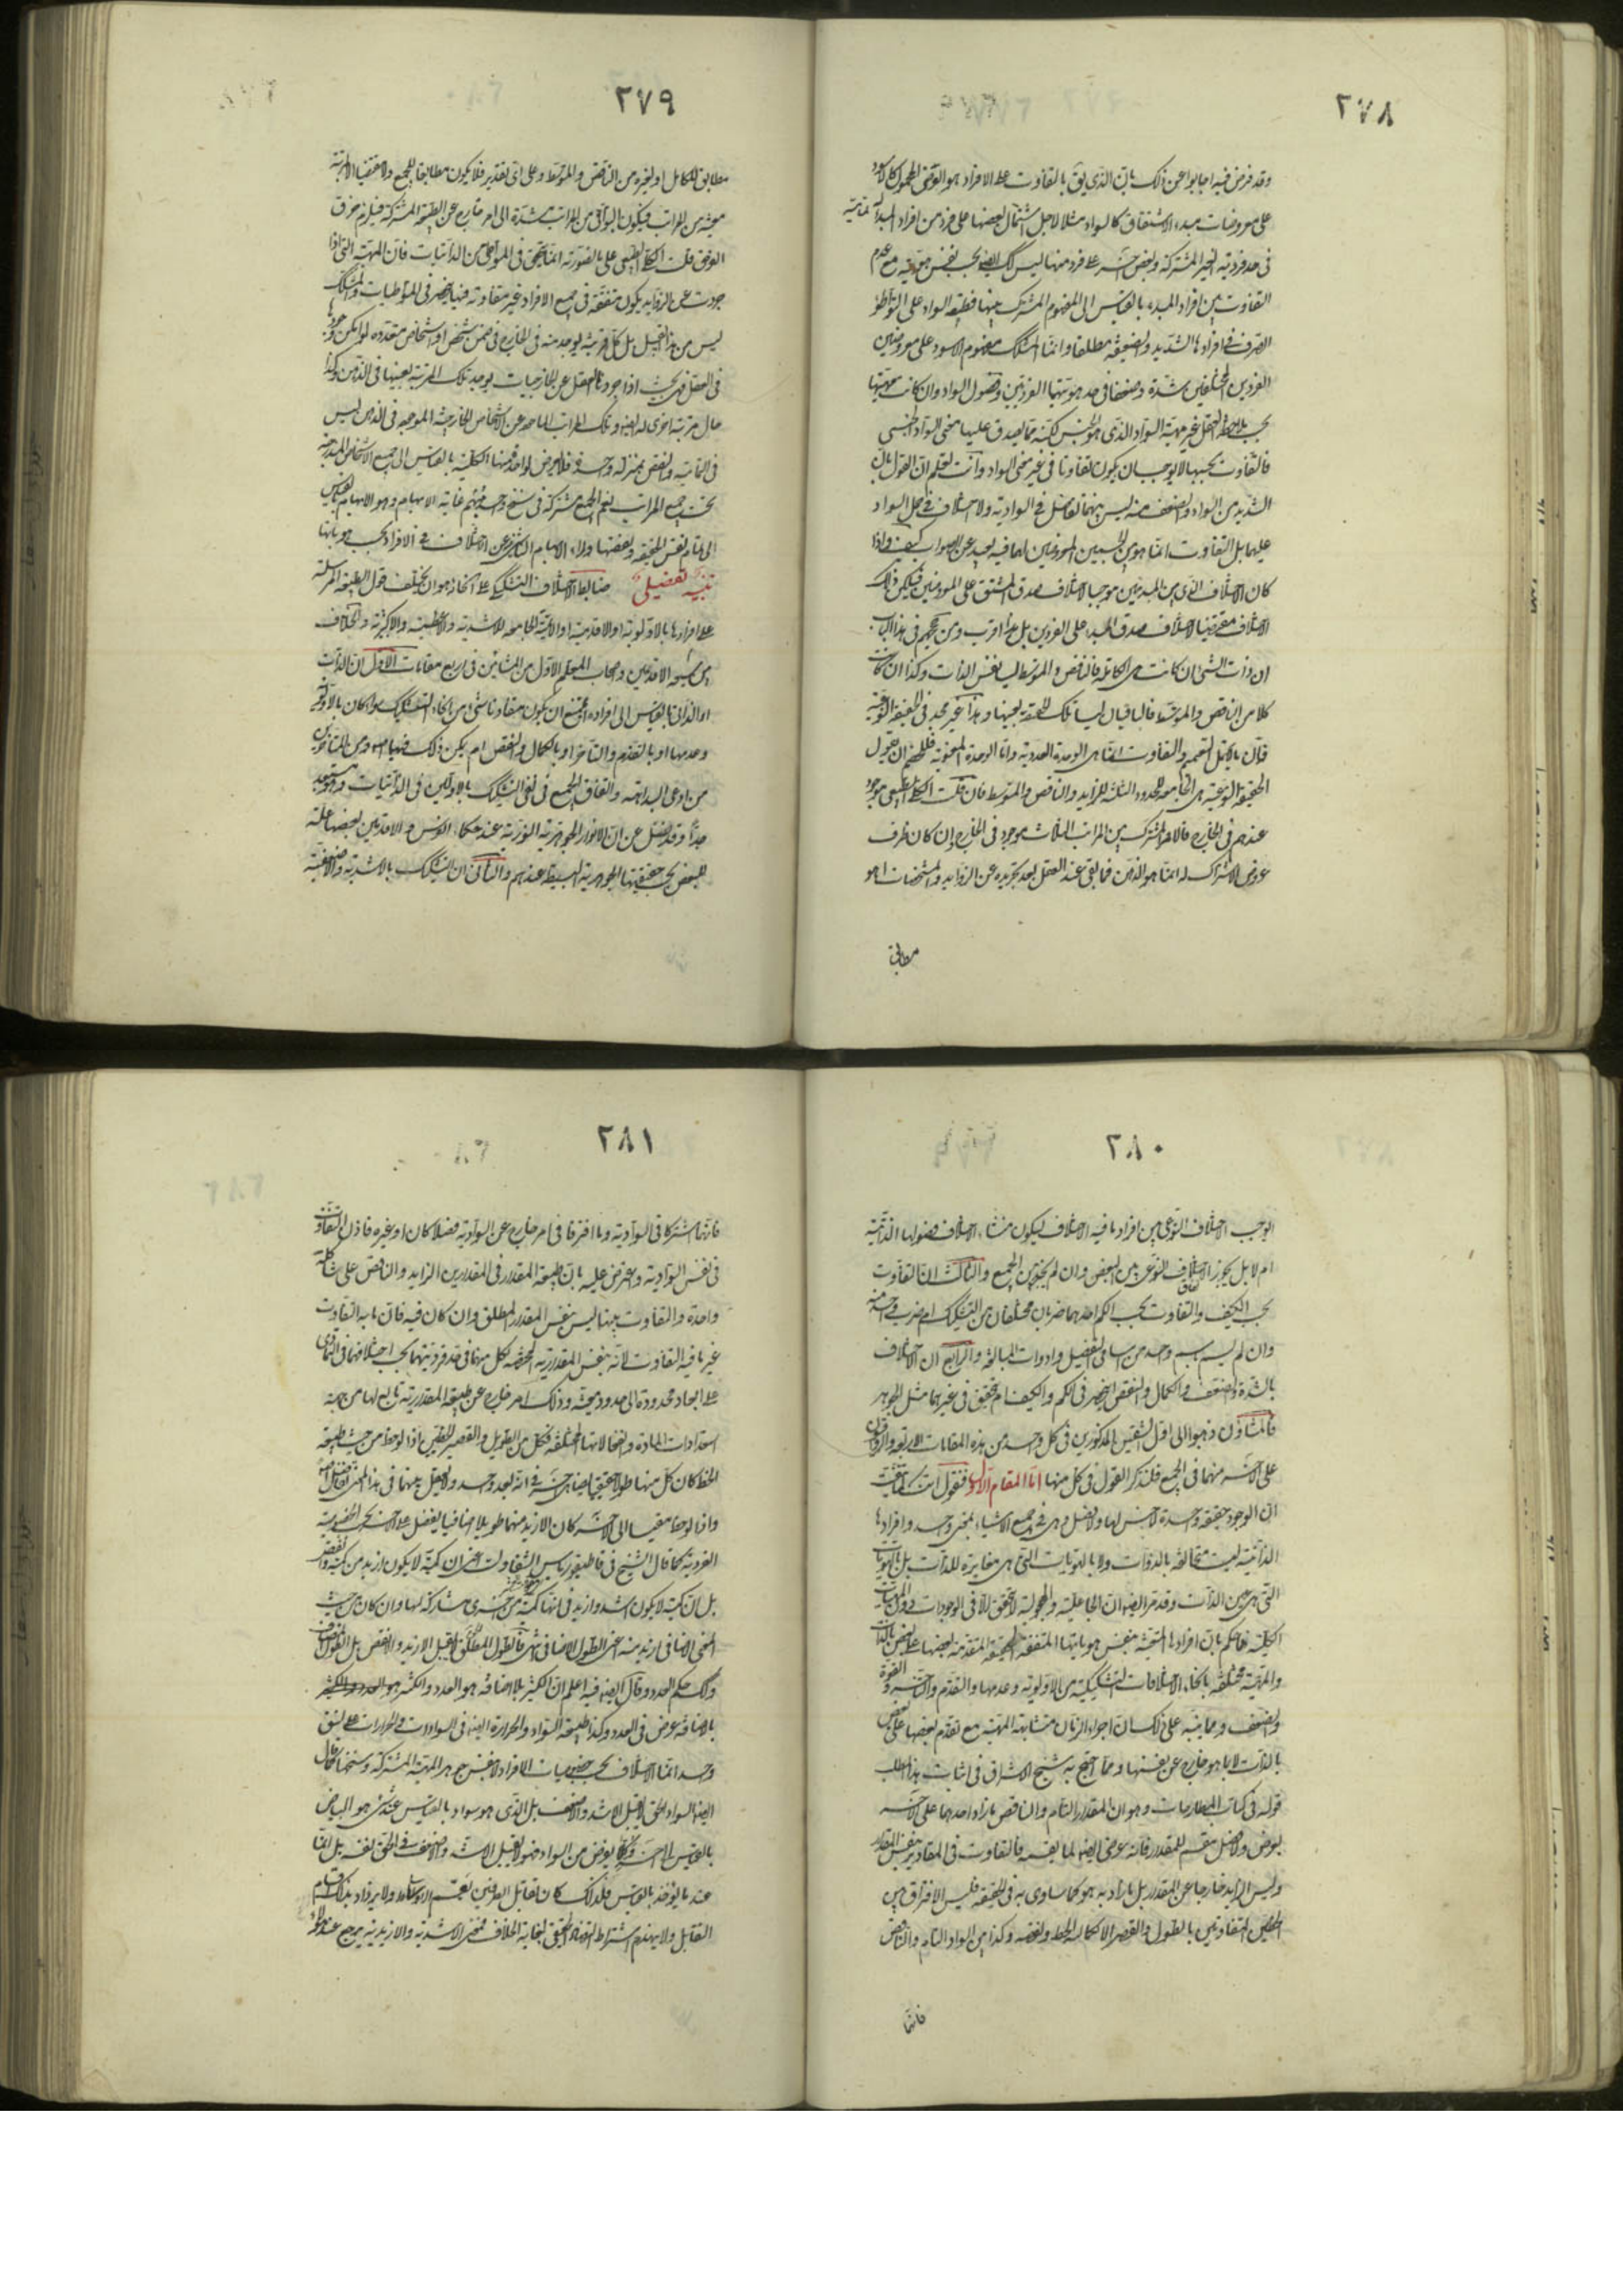 ٢٧٨
وقد فرض فيه اجابوا عن ذلك بان الذي يق بالتفاوت على الافراد هو العرضى المحمول كالاسود
على معروضات مبدء الاشتقاق كالسواد مثلا لاجل اشتمال بعضها على فرد من افراد المبدأ له تمامية
فى حد فرديته الغير المشتركة وبعض اخر على فرد منها ليس كك ايضا بحسب نفس هويته مع عدم
التفاوت بين افراد المبدء بالقياس الى المفهوم المشترك بينها فطبيعة السواد على التواطؤ
الصرف فى افرادها الشديد والضعيفة مطلقا وانما المشكك مفهوم الاسود على معروضى
الفردين المختلفين بشدة وضعفا فى حد هويتهما الفرديتين وفصول السواد وان كانت مهيتها
بحسب ملاحظة العقل غير مهية السواد الذى هو الجنس لكنه مما يصدق عليها معنى السواد الجنسى
فالتفاوت بحسبها لا يوجب ان يكون تفاوتا فى غير معنى السواد وانت تعلم ان القول بان
الشديد من السواد والضعيف منه ليس بينهما تفاضل فى السوادية ولا اختلاف فى حمل السواد
عليهما بل التفاوت انما هو بين الجسمين المعروضين لهما فيه بعيد عن الصواب كيف واذا
كان الاختلاف الذى بين المبدئين موجبا لاختلاف صدق المشتق على المعروضين فليكن ذلك
الاختلاف مقتضيا لاختلاف صدق المبدء على الفردين بل هذا اقرب ومن حججهم فى هذا الباب
ان ذات الشئ ان كانت هى الكاملة فالناقص والمتوسط ليسا نفس الذات وكذا ان كانت
كلا من الناقص والمتوسط فالباقيان ليسا تلك الحقيقة بعينها وهذا غير مجد فى الحقيقة النوعية
فان ما لا يحتمل التعميم والتفاوت انما هى الوحدة العددية واما الوحدة المعنوية فللخصم ان يقول
الحقيقة النوعية هى الجامعة للحدود الثلثة الزايد والناقص والمتوسط فان قلت الكلى الطبيعى موجود
عندهم فى الخارج فالامر المشترك بين المراتب الثلاث موجود فى الخارج وان كان ظرف
عروض الاشتراك له انما هو الذهن فما بقى عند العقل بعد تجريده عن الزوايد والمشخصات اهو
مطابق
٢٧٩
مطابق للكامل او لغيره من الناقص والمتوسط وعلى اى تقدير فلا يكون مطابقا للجميع ولا مقتضيا الا لمرتبة
معينة من المراتب فيكون البواقى من المراتب مستندة الى امر خارج عن الطبيعة المشتركة فيلزم خرق
الفرض قلت الكلى الطبيعى على ما تصورته انما يتحقق فى المتواطى من الذاتيات فان المهية التى اذا
جردت عن الزوايد يكون متفقة فى جميع الافراد غير متفاوتة فيها ينحصر فى المتواطيات والمشكك
ليس من هذا القبيل بل كل مرتبة يوجد منه فى الخارج فى ضمن شخص او اشخاص متعددة لو امكن وجودها
فى العقل فهى بحيث اذا جردها العقل عن الخارجيات يوجد تلك المرتبة بعينها فى الذهن وكذا
حال مرتبة اخرى له ايضا وتلك المراتب الماخوذة عن الاشخاص الخارجية الموجودة فى الذهن ليس
فى التمامية والنقص بمنزلة واحدة فلا يعرض لواحدة منها الكلية بالقياس الى جميع الاشخاص المندرجة
تحت جميع المراتب نعم الجميع مشتركة فى سنخ واحد مبهم غاية الابهام وهو الابهام بالقياس
الى تمام نفس الحقيقة ونقصها وراء الابهام الناشئ عن الاختلاف فى الافراد بحسب هوياتها
تنبيه تفصيلى ضابط الاختلاف التشكيكى على انحائه هو ان يختلف قول الطبيعة المرسلة
على افرادها بالاولوية او الاقدمية او الاتمية الجامعة للاشدية والاعظمية والاكثرية والخلاف
بين شيعة الاقدمين واصحاب المعلم الاول من المشائين فى اربع مقامات الاول ان الذات
او الذاتى بالقياس الى افراده ايمتنع ان يكون متفاوتا بشئ من انحاء التشكيك سواء كان بالاولوية
وعدمها او بالتقدم والتاخر او بالكمال والنقص ام يكن ذلك فيها ومن المتاخرين
من ادعى البداهة واتفاق الجميع فى نفى التشكيك بالاولين فى الذاتيات وهو مستبعد
جدا وقد نقل عن ان الانوار الجوهرية النورية عند حكماء الفرس والاقدمين بعضها علة
للبعض بحسب حقيقتها الجوهرية البسيطة عندهم والثانى ان التشكيك بالاشدية والاضعفية
٢٨٠
ايوجب الاختلاف النوعى بين افراد ما فيه الاختلاف ليكون منشاء الاختلاف فصولها الذاتية
ام لا بل يجوز الاختلاف النوعى بين البعض وان لم يجوز بين الجميع والثالث ان التفاوت
بحسب الكيف والتفاوت بحسب الكم اهما ضربان مختلفان من التشكيك ام ضرب واحد منه
وان لم يسم باسم واحد من اسامى التفضيل وادوات المبالغة والرابع ان الاختلاف
بالشدة والضعف والكمال والنقص اينحصر فى الكم والكيف ام يتحقق فى غيرهما مثل الجوهر
فالمشاؤن ذهبوا الى اول الشقين المذكورين فى كل واحد من هذه المقامات الاربعة والرواقيون
على الاخر منهما فى الجميع فلنذكر القول فى كل منها اما المقام الاول فنقول انك قد تحققت
ان الوجود حقيقة واحدة لا جنس لها ولا فصل وهى فى جميع الاشياء بمعنى واحد وافرادها
الذاتية ليست متخالفة بالذوات ولا بالهويات التى هى مغايرة للذات بل بالهويات
التى هى عين الذات وقد مر ايضا ان الجاعلية والمجعولية لا تتحقق الا فى الوجودات دون المهيات
الكلية فاحكم بان افرادها المتعينة بنفس هوياتها المتفقة الحقيقة المتقدمة بعضها على بعض بالذات
والمهية مختلفة بانحاء الاختلافات التشكيكية من الاولوية وعدمها والتقدم والتاخر والقوة
والضعف ومما ينبه على ذلك ان اجزاء الزمان متشابهة المهية مع تقدم بعضها على بعض
بالذات لا بما هو خارج عن نفسها ومما احتج به شيخ الاشراق فى اثبات هذا المطلب
قوله فى كتاب المطارحات وهو ان المقدار التام والناقص ما زاد احدهما على الاخر
بعرض ولا فصل مقسم للمقدار فانه عرضى ايضا لما يقسمه فالتفاوت فى المقادير بنفس المقدار
وليس الزايد خارجا عن المقدار بل ما زاد به هو كما ساوى به فى الحقيقة فليس الافتراق بين
الخطين المتفاوتين بالطول والقصر الا بكمالية الخط ونقصه وكذا بين السواد التام والناقص
فانهما
٢٨١
فانهما اشتركا فى السوادية وما افترقا فى امر خارج عن السوادية فصلا كان او غيره فاذن التفاوت
فى نفس السوادية واعترض عليه بان طبيعة المقدار فى المقدارين الزايد والناقص على شاكلة
واحدة والتفاوت بينهما ليس بنفس المقدار المطلق وان كان فيه فان ما به التفاوت
غير ما فيه التفاوت لانه بنفس المقدارية المختصة لكل منهما فى حد فرديتهما بحسب اختلافهما فى التمادى
على ابعاد محدودة الى حدود معينة وذلك امر خارج عن طبيعة المقدارية تابع لها من جهة
استعدادات المادة وانفعالاتها المختلفة فكل من الطويل والقصير الخطين اذا لوحظ من حيث طبيعة
الخط كان كل منهما طولا حقيقيا يضاهى الاخر فى انه بعد واحد ولا يعقل بينهما فى هذا المعنى تفاضل اصلا
واذا لوحظا مقيسا الى الاخر كان الازيد منهما طويلا اضافيا يفضل على الاخر بحسب الخصوصية
الفردية كما قال الشيخ فى قاطيغورياس الشفا ولست اعنى ان كمية لا يكون ازيد من كمية وانقص
بل ان كمية لا يكون اشد وازيد فى انها كمية من اخرى مشاركة لها وان كان من حيث
المعنى الاضافى ازيد منه اعنى الطول الاضافى فالطول المطلق لا يقبل الازيد والانقص بل الطول المضاف
وكك حكم العدد وقال ايضا فيه اعلم ان الكثير بلا اضافة هو العدد والكثير
بالاضافة عرض فى العدد وكذا طبيعة السواد والحرارة ايضا فى السوادات والحرارات على نسق
واحد انما الاختلاف بحسب خصوصيات الافراد لا بنفس جوهر المهية المشتركة وسنخها فقال
ايضا السواد الحق لا يقبل الاشد والاضعف بل الذى هو سواد بالقياس عند شئ هو البياض
بالقياس الى اخر وكل ما يفرض من السواد فهو لا يقبل الاشد والاضعف فى حق نفسه بل انما
عند ما يؤخذ بالقياس فلذلك كان تقابل الطرفين يعم الاوساط ولا يزداد بذلك اقسام
التقابل ولا ينهدم اشتراط التضاد الحقيقى بغاية الخلاف فمعنى الاشدية والازيدية يرجع عند هؤلاء